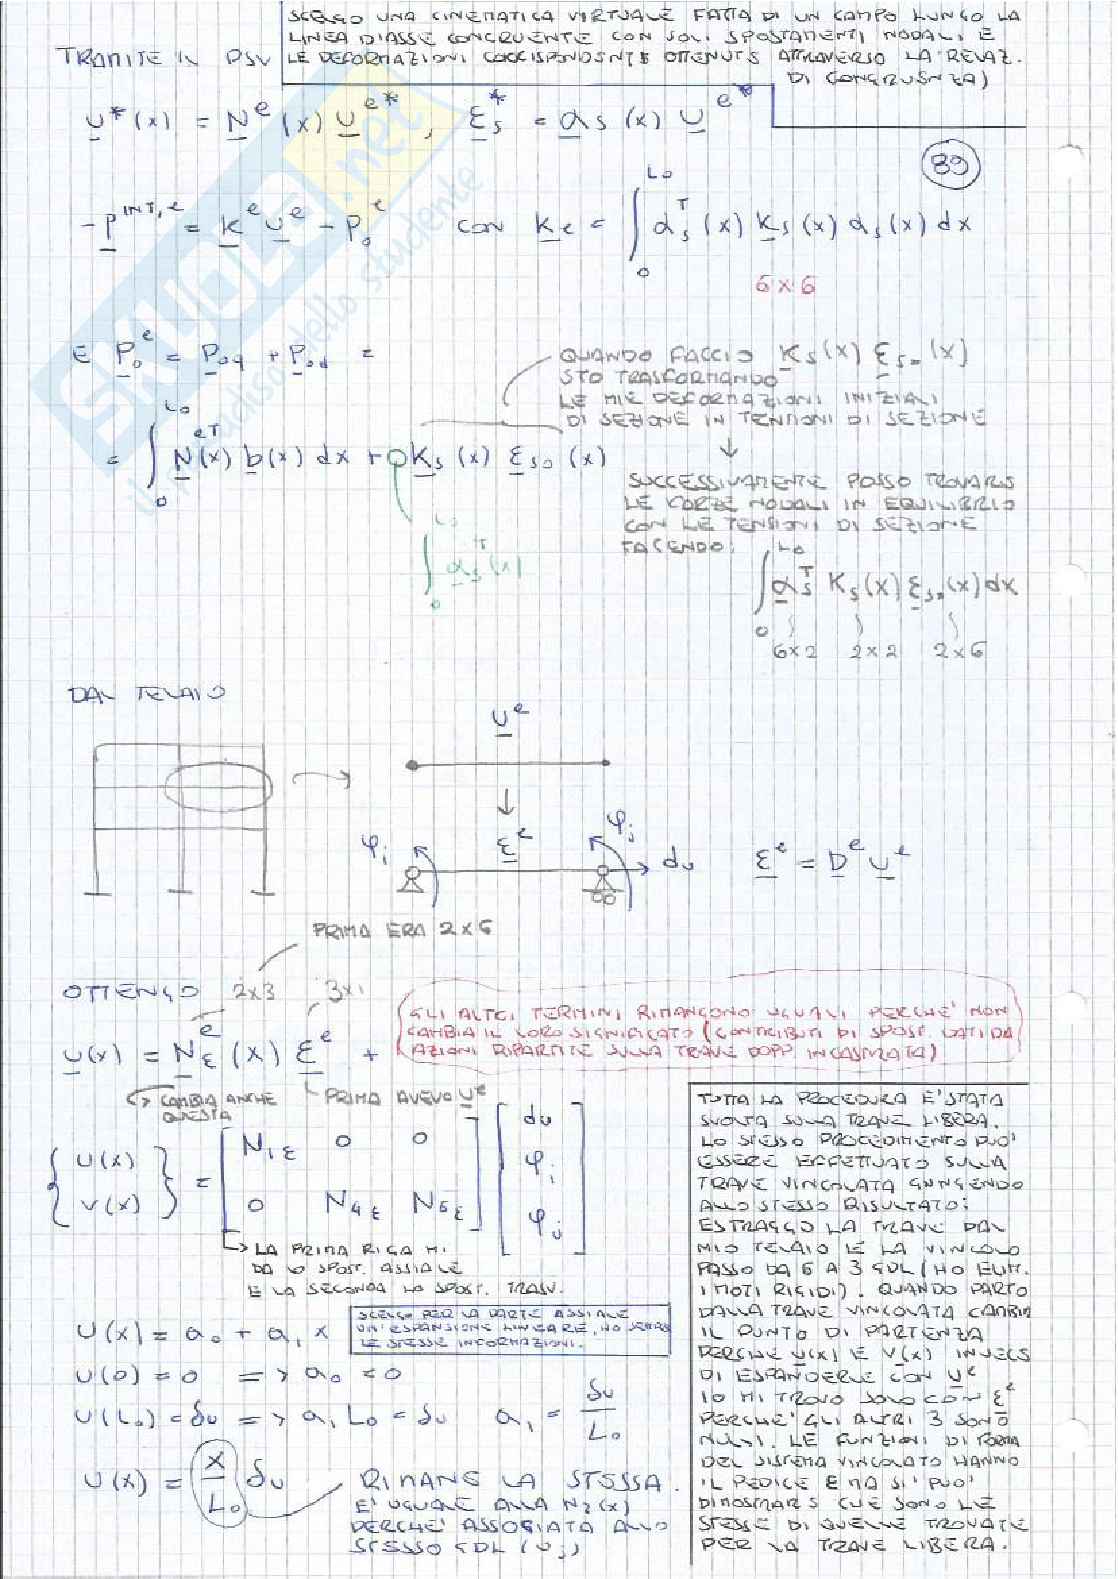 SCELGO UNA CINEMATICA VIRTUALE FATTA DI UN CAMPO LUNGO LA
LINEA D'ASSE CONGRUENTE CON SOLI SPOSTAMENTI NODALI E
TRAMITE IL PSV LE DEFORMAZIONI CORRISPONDENTI OTTENUTE ATTRAVERSO LA RELAZ.
DI CONGRUENZA)
U*(x) = N^e (x) U^e*, ε_s* = α_s (x) U^e*
89
-P^INT,e = K^e U^e - P_0^e CON K_e = ∫_0^L0 α_s^T (x) K_s (x) α_s (x) dx
6x6
E P_0^e = P_0q + P_0d =
QUANDO FACCIO K_s(x) ε_s0(x)
STO TRASFORMANDO
LE MIE DEFORMAZIONI INIZIALI
DI SEZIONE IN TENSIONI DI SEZIONE
= ∫_0^L0 N^eT(x) b(x) dx + K_s (x) ε_s0 (x)
∫_0^L0 α_s^T (x)
SUCCESSIVAMENTE POSSO TROVARE
LE FORZE NODALI IN EQUILIBRIO
CON LE TENSIONI DI SEZIONE
FACENDO:
∫_0^L0 α_s^T K_s(x) ε_s0(x) dx
6x2 2x2 2x6
DAL TELAIO
U^e
ε^e
φ_i φ_j du
ε^e = D^e U^e
PRIMA ERA 2x6
OTTENGO 2x3 3x1
U(x) = N_ε^e (x) ε^e +
GLI ALTRI TERMINI RIMANGONO UGUALI PERCHE' NON
CAMBIA IL LORO SIGNIFICATO (CONTRIBUTI DI SPOST. DATI DA
AZIONI RIPARTITE SULLA TRAVE DOPP. INCASTRATA)
CAMBIA ANCHE
QUESTA
PRIMA AVEVO U^e
{U(x) V(x)} = [N_1ε 0 0
0 N_4ε N_6ε] [du φ_i φ_j]
LA PRIMA RIGA MI
DA LO SPOST. ASSIALE
E LA SECONDA LO SPOST. TRASV.
U(x) = a_0 + a_1 x
SCELGO PER LA PARTE ASSIALE
UN'ESPANSIONE LINEARE, HO SEMPRE
LE STESSE INFORMAZIONI.
U(0) = 0 => a_0 = 0
U(L_0) = δu => a_1 L_0 = δu a_1 = δu/L_0
U(x) = (x/L_0) δu
RIMANE LA STESSA.
E' UGUALE ALLA N_2(x)
PERCHE' ASSOCIATA ALLO
STESSO GDL (U_j)
TUTTA LA PROCEDURA E' STATA
SVOLTA SULLA TRAVE LIBERA.
LO STESSO PROCEDIMENTO PUO'
ESSERE EFFETTUATO SULLA
TRAVE VINCOLATA GIUNGENDO
ALLO STESSO RISULTATO:
ESTRAGGO LA TRAVE DAL
MIO TELAIO E LA VINCOLO
PASSO DA 6 A 3 GDL (HO ELIM.
I MOTI RIGIDI). QUANDO PARTO
DALLA TRAVE VINCOLATA CAMBIA
IL PUNTO DI PARTENZA
PERCHE U(x) E V(x) INVECE
DI ESPANDERLE CON U^e
IO MI TROVO SOLO CON ε^e
PERCHE' GLI ALTRI 3 SONO
NULLI. LE FUNZIONI DI FORMA
DEL SISTEMA VINCOLATO HANNO
IL PEDICE ε MA SI PUO'
DIMOSTRARE CHE SONO LE
STESSE DI QUELLE TROVATE
PER LA TRAVE LIBERA.
SKUOLA.net
il paradiso dello studente